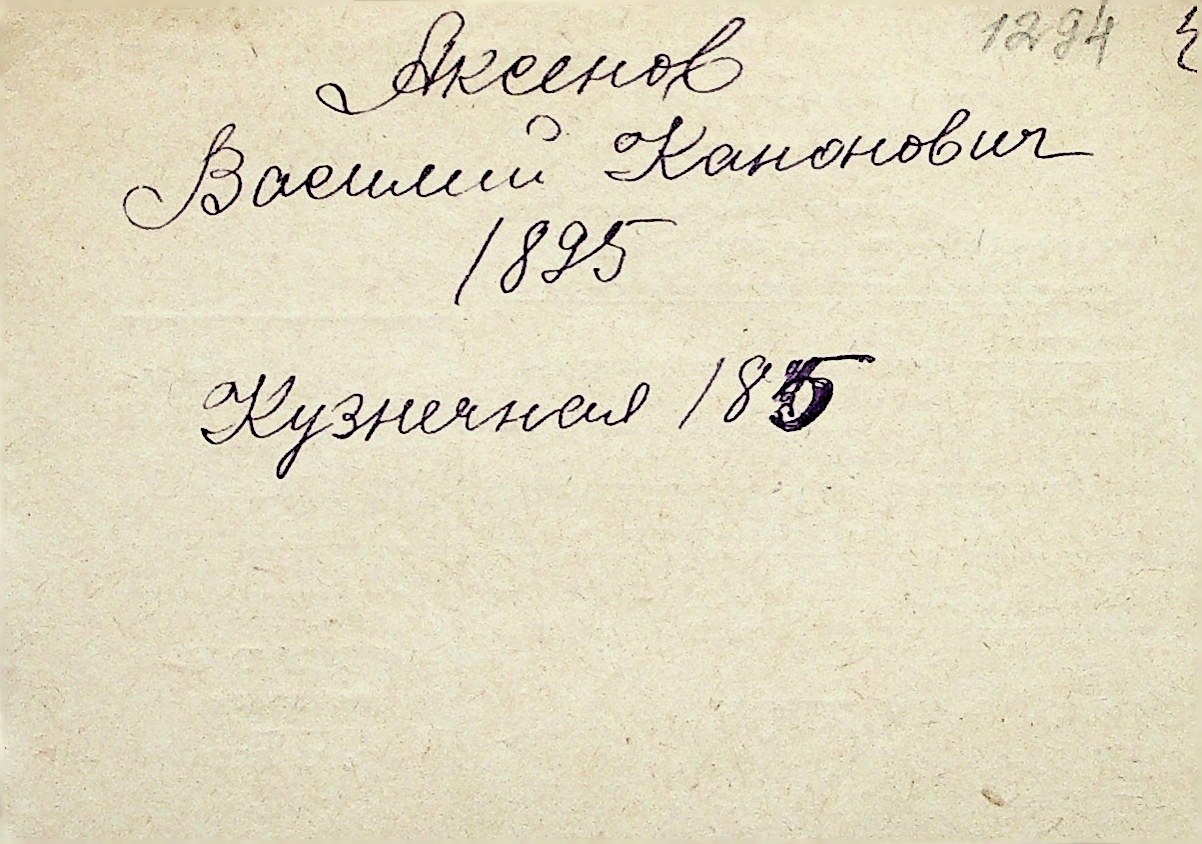 1294
Аксенов
Василий Канонович
1895
Кузнечная 185